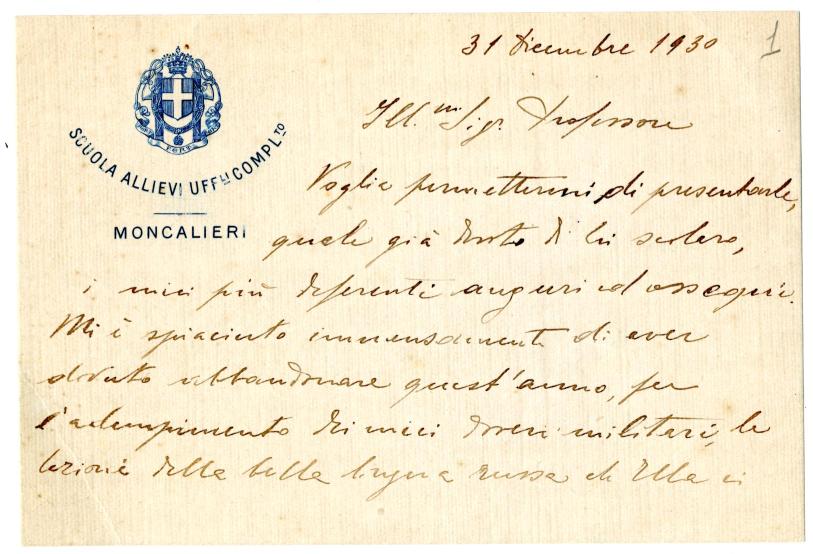 31 Dicembre 1930
1
FERT
SCUOLA ALLIEVI UFF.LI COMPL.TO
MONCALIERI
Ill.mo Sigr. Professore
Voglia permettermi di presentarle,
quale già devoto di lei scolaro,
i miei più deferenti auguri ed ossequi.
Mi è spiaciuto immensamente di aver
dovuto abbandonare quest'anno, per
l'adempimento dei miei doveri militari, le
lezioni della bella lingua russa ch'Ella ci